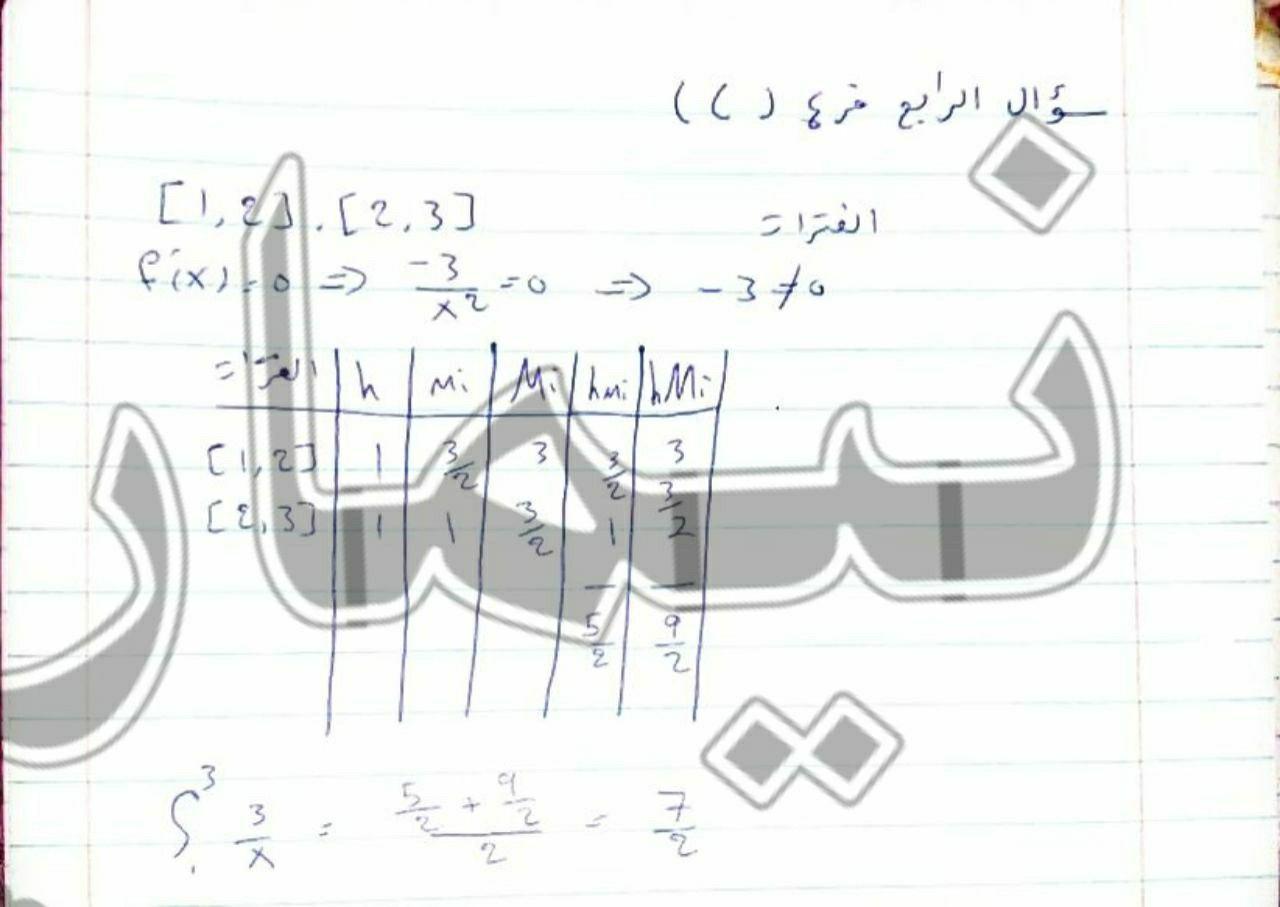 سؤال الرابع فرع ( ) )
الفترات
[1,2] . [2,3]
f'(x) = 0 => -3/x² = 0 => -3 ≠ 0
الفترات | h | mi | Mi | hmi | hMi
[1,2] | 1 | 3/2 | 3 | 3/2 | 3
[2,3] | 1 | 1 | 3/2 | 1 | 3/2
5/2 | 9/2
∫₁³ 3/x = (5/2 + 9/2)/2 = 7/2
نيمار